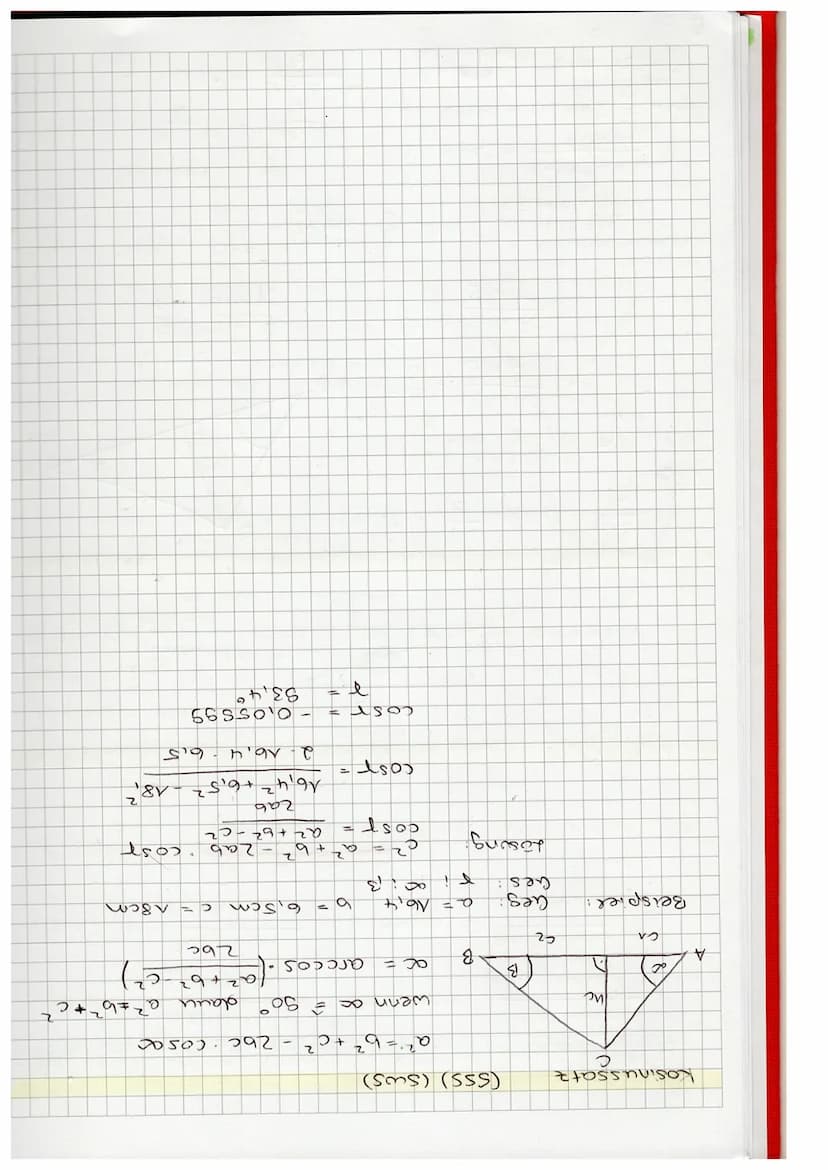 Kosinussatz (SSS) (SWS)
a² = b² + c² - 2bc · cos α
wenn α ≙ 90° dann a² = b² + c²
α = arccos · (a² + b² - c² / 2bc)
C
hc
A α β B
c1 c2
Beispiel: Geg: a = 16,4 b = 6,5cm c = 18cm
Ges: γ; α; β
Lösung: c² = a² + b² - 2ab · cos γ
cos γ = a² + b² - c² / 2ab
cos γ = 16,4² + 6,5² - 18,² / 2 · 16,4 · 6,5
cos γ = - 0,05899
γ = 93,4°